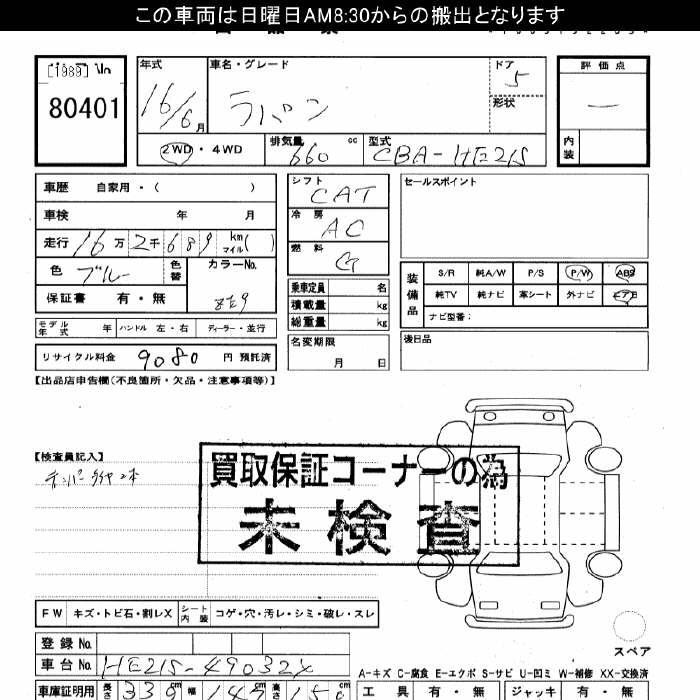 この車両は日曜日AM8:30からの搬出となります
[1989]
80401
年式 16/6月
車名・グレード ラパン
ドア 5
形状
評価点 —
内装
2WD・4WD
排気量 660 cc
型式 CBA-HE21S
車歴 自家用・( )
車検 年 月
走行 16万2千689 km マイル( )
色 ブルー 色替
カラーNo.
保証書 有・無
シフト CAT
冷房 AC
燃料 G
乗車定員 名
積載量 kg
総重量 kg
名変期限 月 日
セールスポイント
装備品
S/R 純A/W P/S P/W ABS
純TV 純ナビ 革シート 外ナビ エアB
ナビ型番:
後日品
モデル年式 年 ハンドル 左・右 ディーラー・並行
リサイクル料金 9080 円 預託済
【出品店申告欄(不良箇所・欠品・注意事項等)】
【検査員記入】
テンパータイヤ
買取保証コーナーの為
未検査
FW キズ・トビ石・割レX シート内装 コゲ・穴・汚レ・シミ・破レ・スレ
スペア
登録No.
車台No. HE21S-49032X
A-キズ C-腐食 E-エクボ S-サビ U-凹ミ W-補修 XX-交換済
車庫証明用 長さ 339cm 幅 147cm 高さ
工具 有・無 ジャッキ 有・無